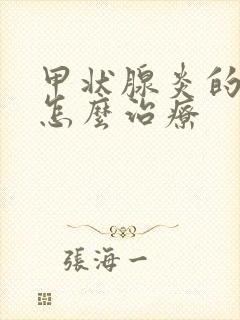 甲状腺炎的
怎麼治療
張海一